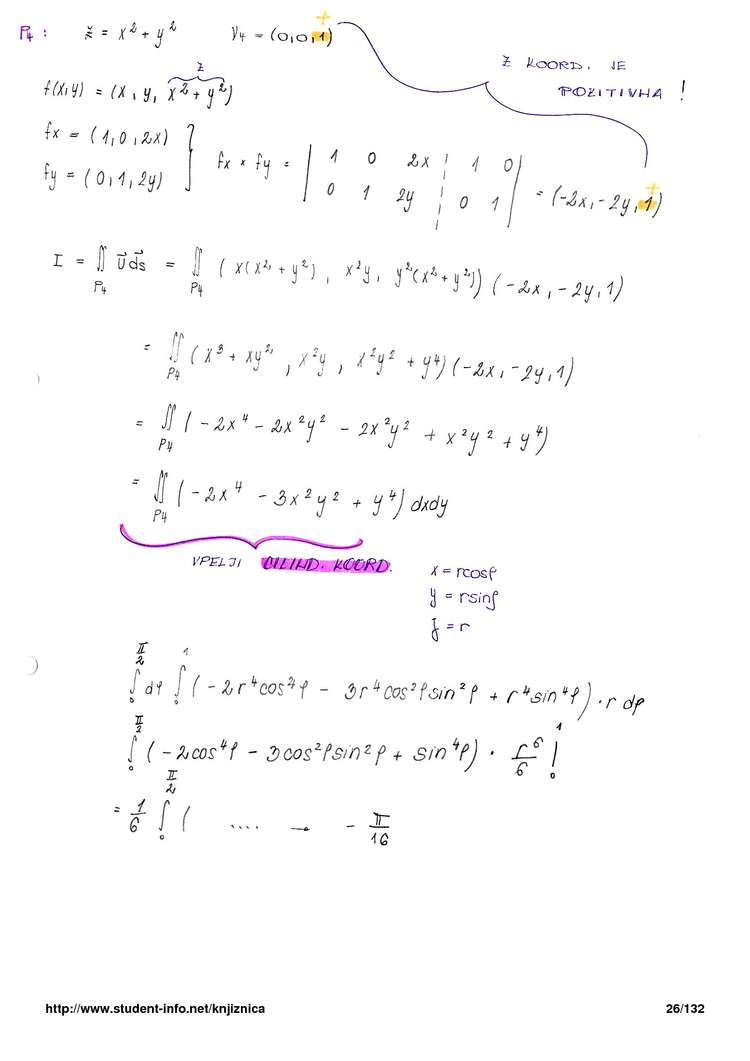 P₄ : ž = x² + y² V₄ = (0,0,1)
+
Z KOORD. JE
POZITIVNA !
z
f(x,y) = (x, y, x² + y²)
fx = (1, 0, 2x)
fy = (0, 1, 2y)
fx × fy = | 1 0 2x | 1 0 |
| 0 1 2y | 0 1 | = (-2x, -2y, 1)
+
I = ∬ U⃗ds⃗ = ∬ (x(x² + y²), x²y, y²(x² + y²)) (-2x, -2y, 1)
P₄ P₄
= ∬ (x³ + xy², x²y, x²y² + y⁴) (-2x, -2y, 1)
P4
= ∬ (-2x⁴ - 2x²y² - 2x²y² + x²y² + y⁴)
P4
= ∬ (-2x⁴ - 3x²y² + y⁴) dxdy
P4
VPELJI CILIND. KOORD.
x = r cos φ
y = r sin φ
J = r
∫₀^(π/2) dφ ∫₀^1 (-2r⁴cos⁴φ - 3r⁴cos²φ sin²φ + r⁴sin⁴φ) · r dφ
∫₀^(π/2) (-2cos⁴φ - 3cos²φ sin²φ + sin⁴φ) · r⁶/6 |₀^1
= 1/6 ∫₀^(π/2) ( .... → - π/16
http://www.student-info.net/knjiznica 26/132